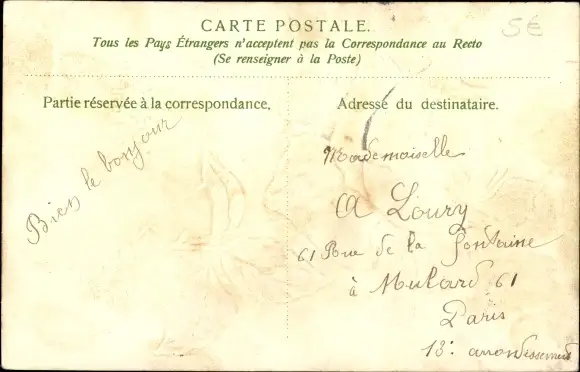 CARTE POSTALE.
5E
Tous les Pays Étrangers n'acceptent pas la Correspondance au Recto
(Se renseigner à la Poste)
Partie réservée à la correspondance.
Bien le bonjour
Adresse du destinataire.
Mademoiselle
A Loury
61 Rue de la fontaine
à Mulard 61
Paris
13: arrondissement